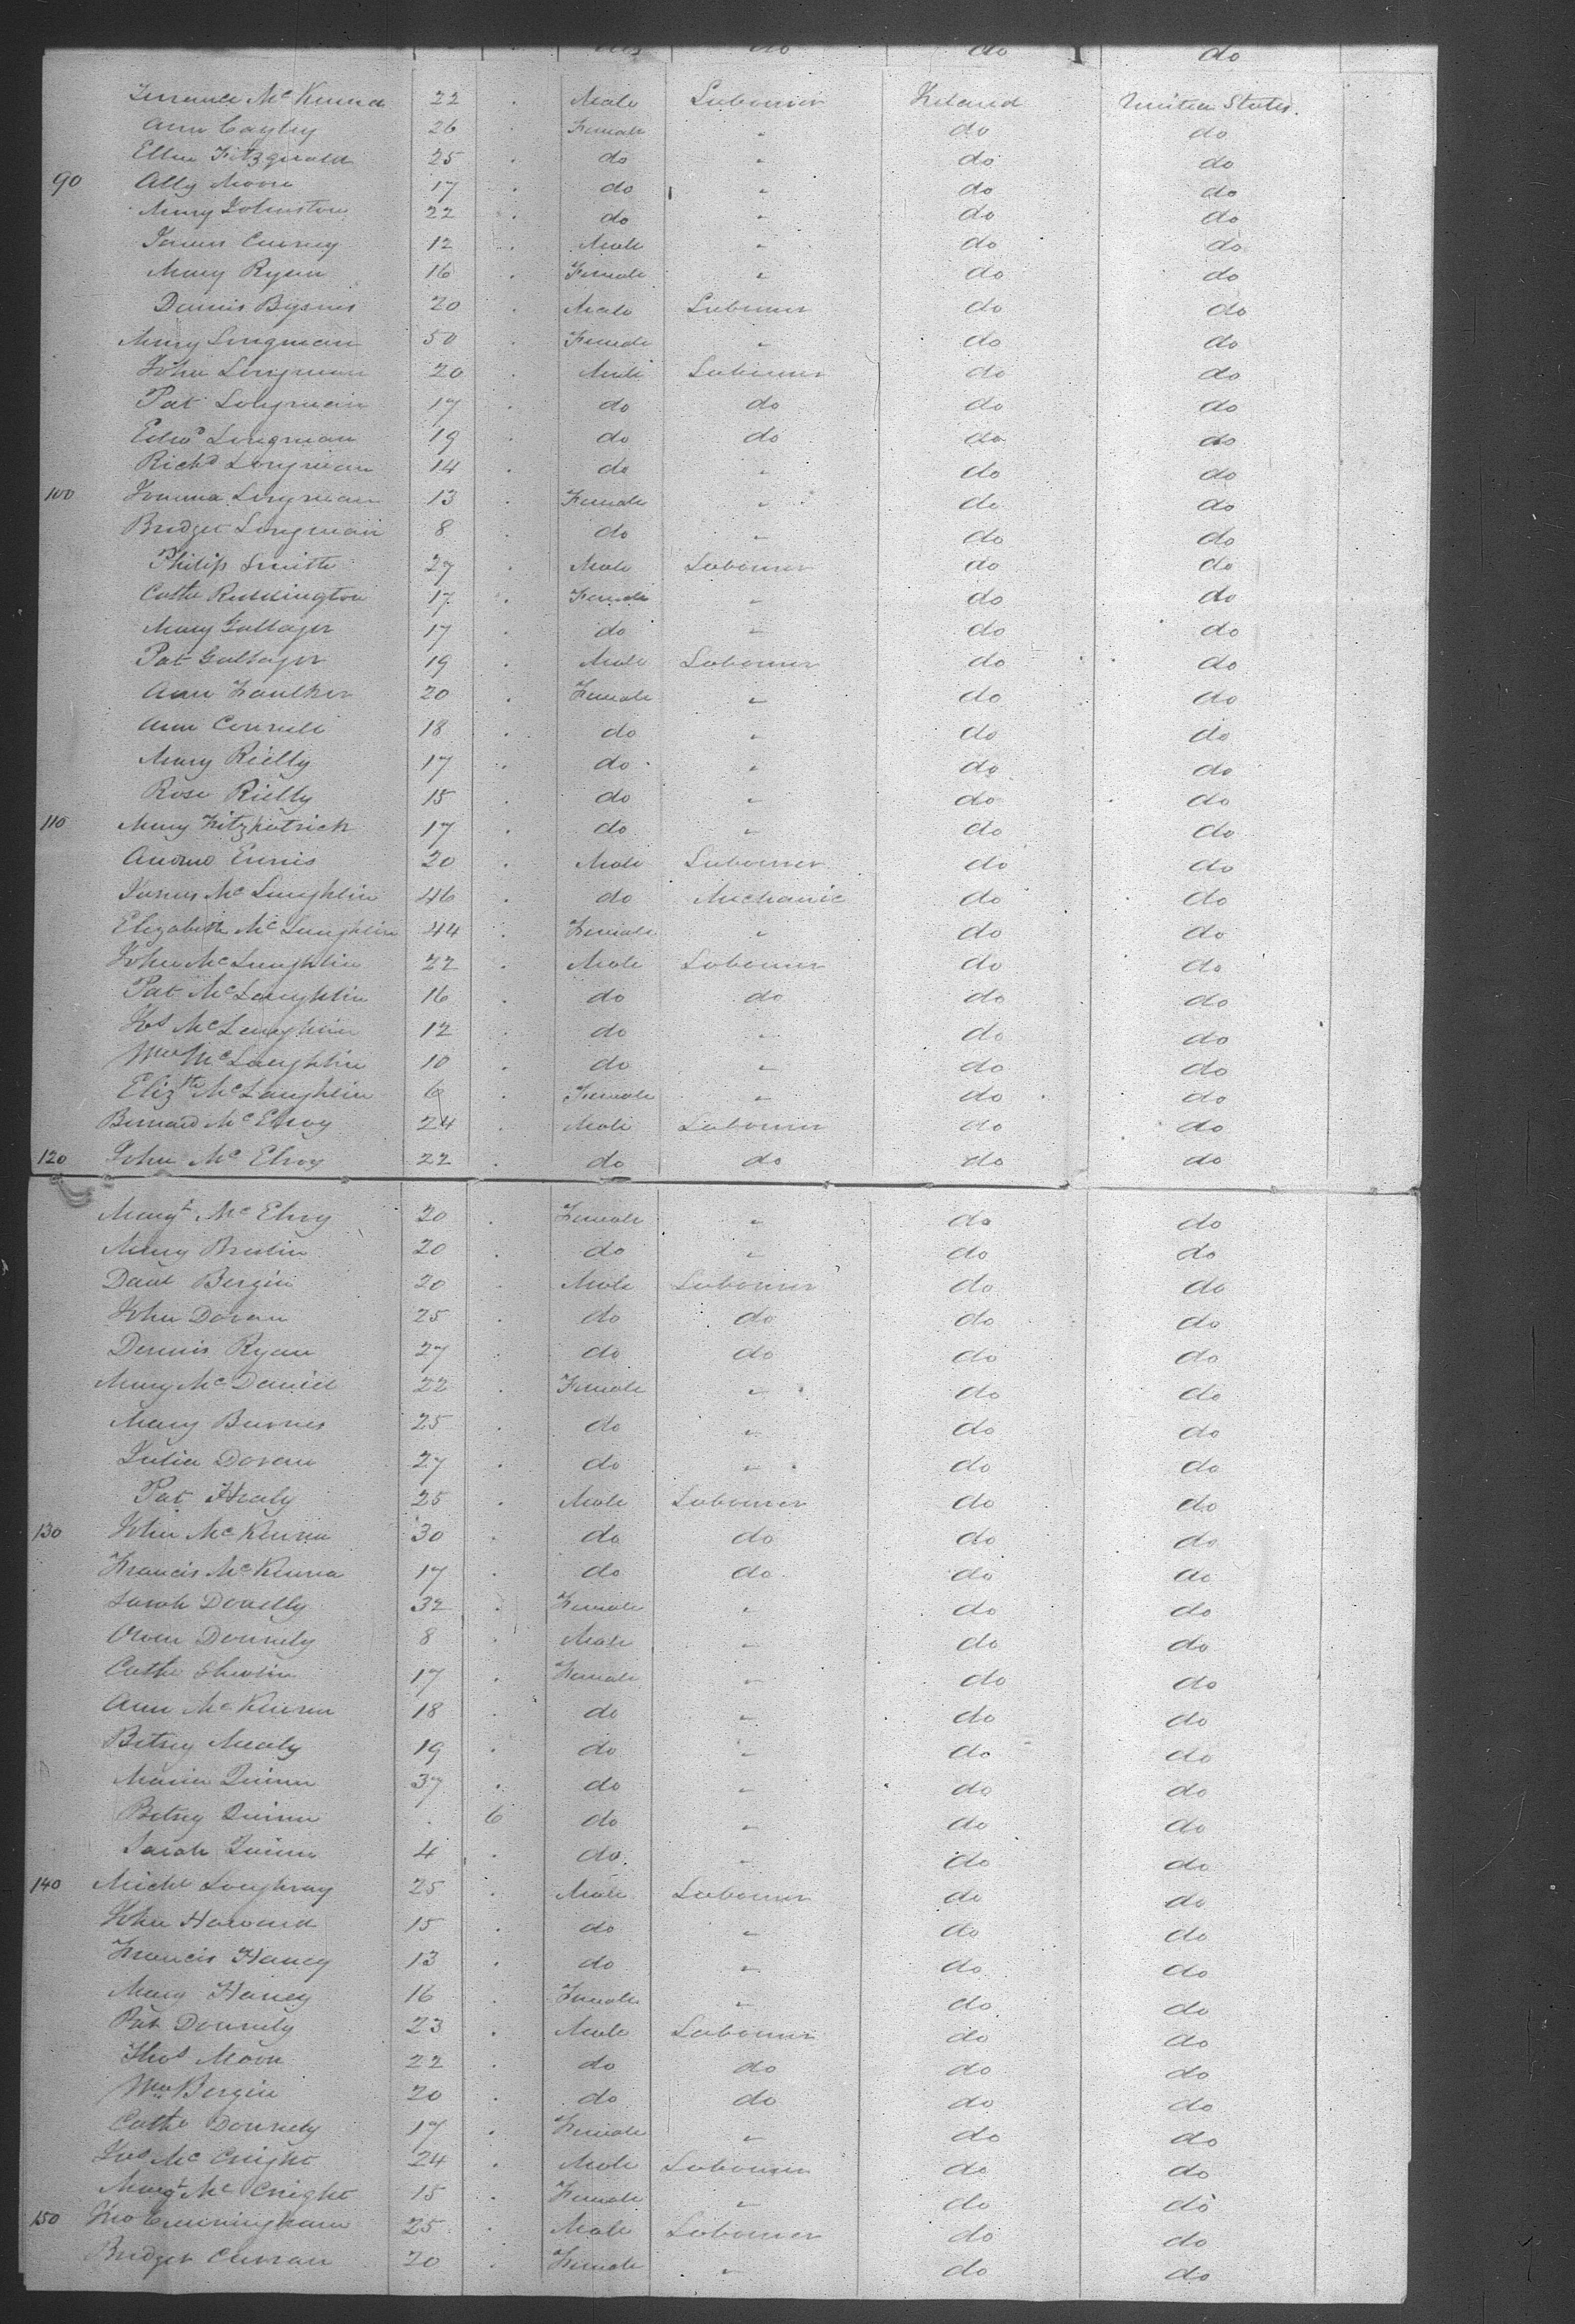 do do do do
Terrance McKenna 22 . Male Labourer Ireland United States.
Ann Cayley 26 . Female " do do
Ellen Fitzgerald 25 . do " do do
90 Ally Moore 17 . do " do do
Mary Johnston 22 . do " do do
James Curney 12 . Male " do do
Mary Ryan 16 . Female " do do
Dennis Byrnes 20 . Male Labourer do do
Mary Longman 50 . Female " do do
John Longman 20 . Male Labourer do do
Pat Longman 17 . do do do do
Edwd Longman 19 . do do do do
Richd Longman 14 . do " do do
100 Joanna Longman 13 . Female " do do
Bridget Longman 8 . do " do do
Philip Smith 27 . Male Labourer do do
Cathe Ruddington 17 . Female " do do
Mary Gallager 17 . do " do do
Pat Gallager 19 . Male Labourer do do
Ann Faulker 20 . Female " do do
Ann Connell 18 . do " do do
Mary Rielly 17 . do " do do
Rose Rielly 15 . do " do do
110 Mary Fitzpatrick 17 . do " do do
Andrew Ennis 20 . Male Labourer do do
James McLaughlin 46 . do Mechanic do do
Elizabeth McLaughlin 44 . Female " do do
John McLaughlin 22 . Male Labourer do do
Pat McLaughlin 16 . do do do do
Jas McLaughlin 12 . do " do do
Wm McLaughlin 10 . do " do do
Elizth McLaughlin 6 . Female " do do
Bernard McElroy 24 . Male Labourer do do
120 John McElroy 22 . do do do do
Margt McElroy 20 . Female " do do
Mary Breslin 20 . do " do do
Danl Bergin 20 . Male Labourer do do
John Doran 25 . do do do do
Dennis Ryan 27 . do do do do
Mary McDaniel 22 . Female " do do
Mary Burnes 25 . do " do do
Julia Doran 27 . do " do do
Pat Healy 25 . Male Labourer do do
130 John McKenna 30 . do do do do
Francis McKenna 17 . do do do do
Sarah Donelly 32 . Female " do do
Owen Donnely 8 . Male " do do
Cathe Shevlin 17 . Female " do do
Ann McKenna 18 . do " do do
Betsey Mealy 19 . do " do do
Maria Quinn 37 . do " do do
Betsey Quinn . 6 do " do do
Sarah Quinn 4 . do " do do
140 Michl Loughray 25 . Male Labourer do do
John Howard 15 . do " do do
Francis Haney 13 . do " do do
Mary Haney 16 . Female " do do
Pat Donnely 23 . Male Labourer do do
Thos Moon 22 . do do do do
Wm Bergin 20 . do do do do
Cathe Donnely 17 . Female " do do
Jas McCnight 24 . Male Labourer do do
Margt McCnight 15 . Female " do do
150 Jno Cunningham 25 . Male Labourer do do
Bridget Curran 20 . Female " do do